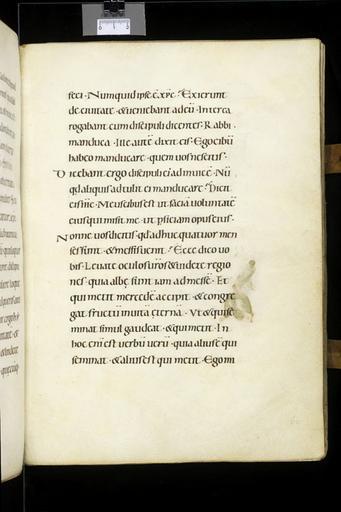 feci · Numquid ipse ē xp̄c · Exierunt
de civitate · & veniebant ad eū · Interea
rogabant eum discipuli dicentes · Rabbi ·
manduca · Ille autē dixit eis · Ego cibū
habeo manducare · quem vos nescitis ·
Dicebant ergo discipuli ei ad invicē · Nū
qd aliquis adtulit ei manducare · Dicit
eis ih̄c · Meus cibus est ut faciā voluntatē
eius qui misit me · ut pficiam opus eius ·
Nonne vos dicitis · qd adhuc quattuor men
ses sunt · & messis venit · Ecce dico vo
bis · Levate oculos vr̄os & videte regio
nes · quia albę sunt iam ad messē · Et
qui metit mercedē accipit · & congre
gat fructū in vitā eternā · Ut & qui se
minat simul gaudeat · & qui metit · In
hoc eni est verbū verū · quia alius ē qui
seminat · & alius est qui metit · Ego mi